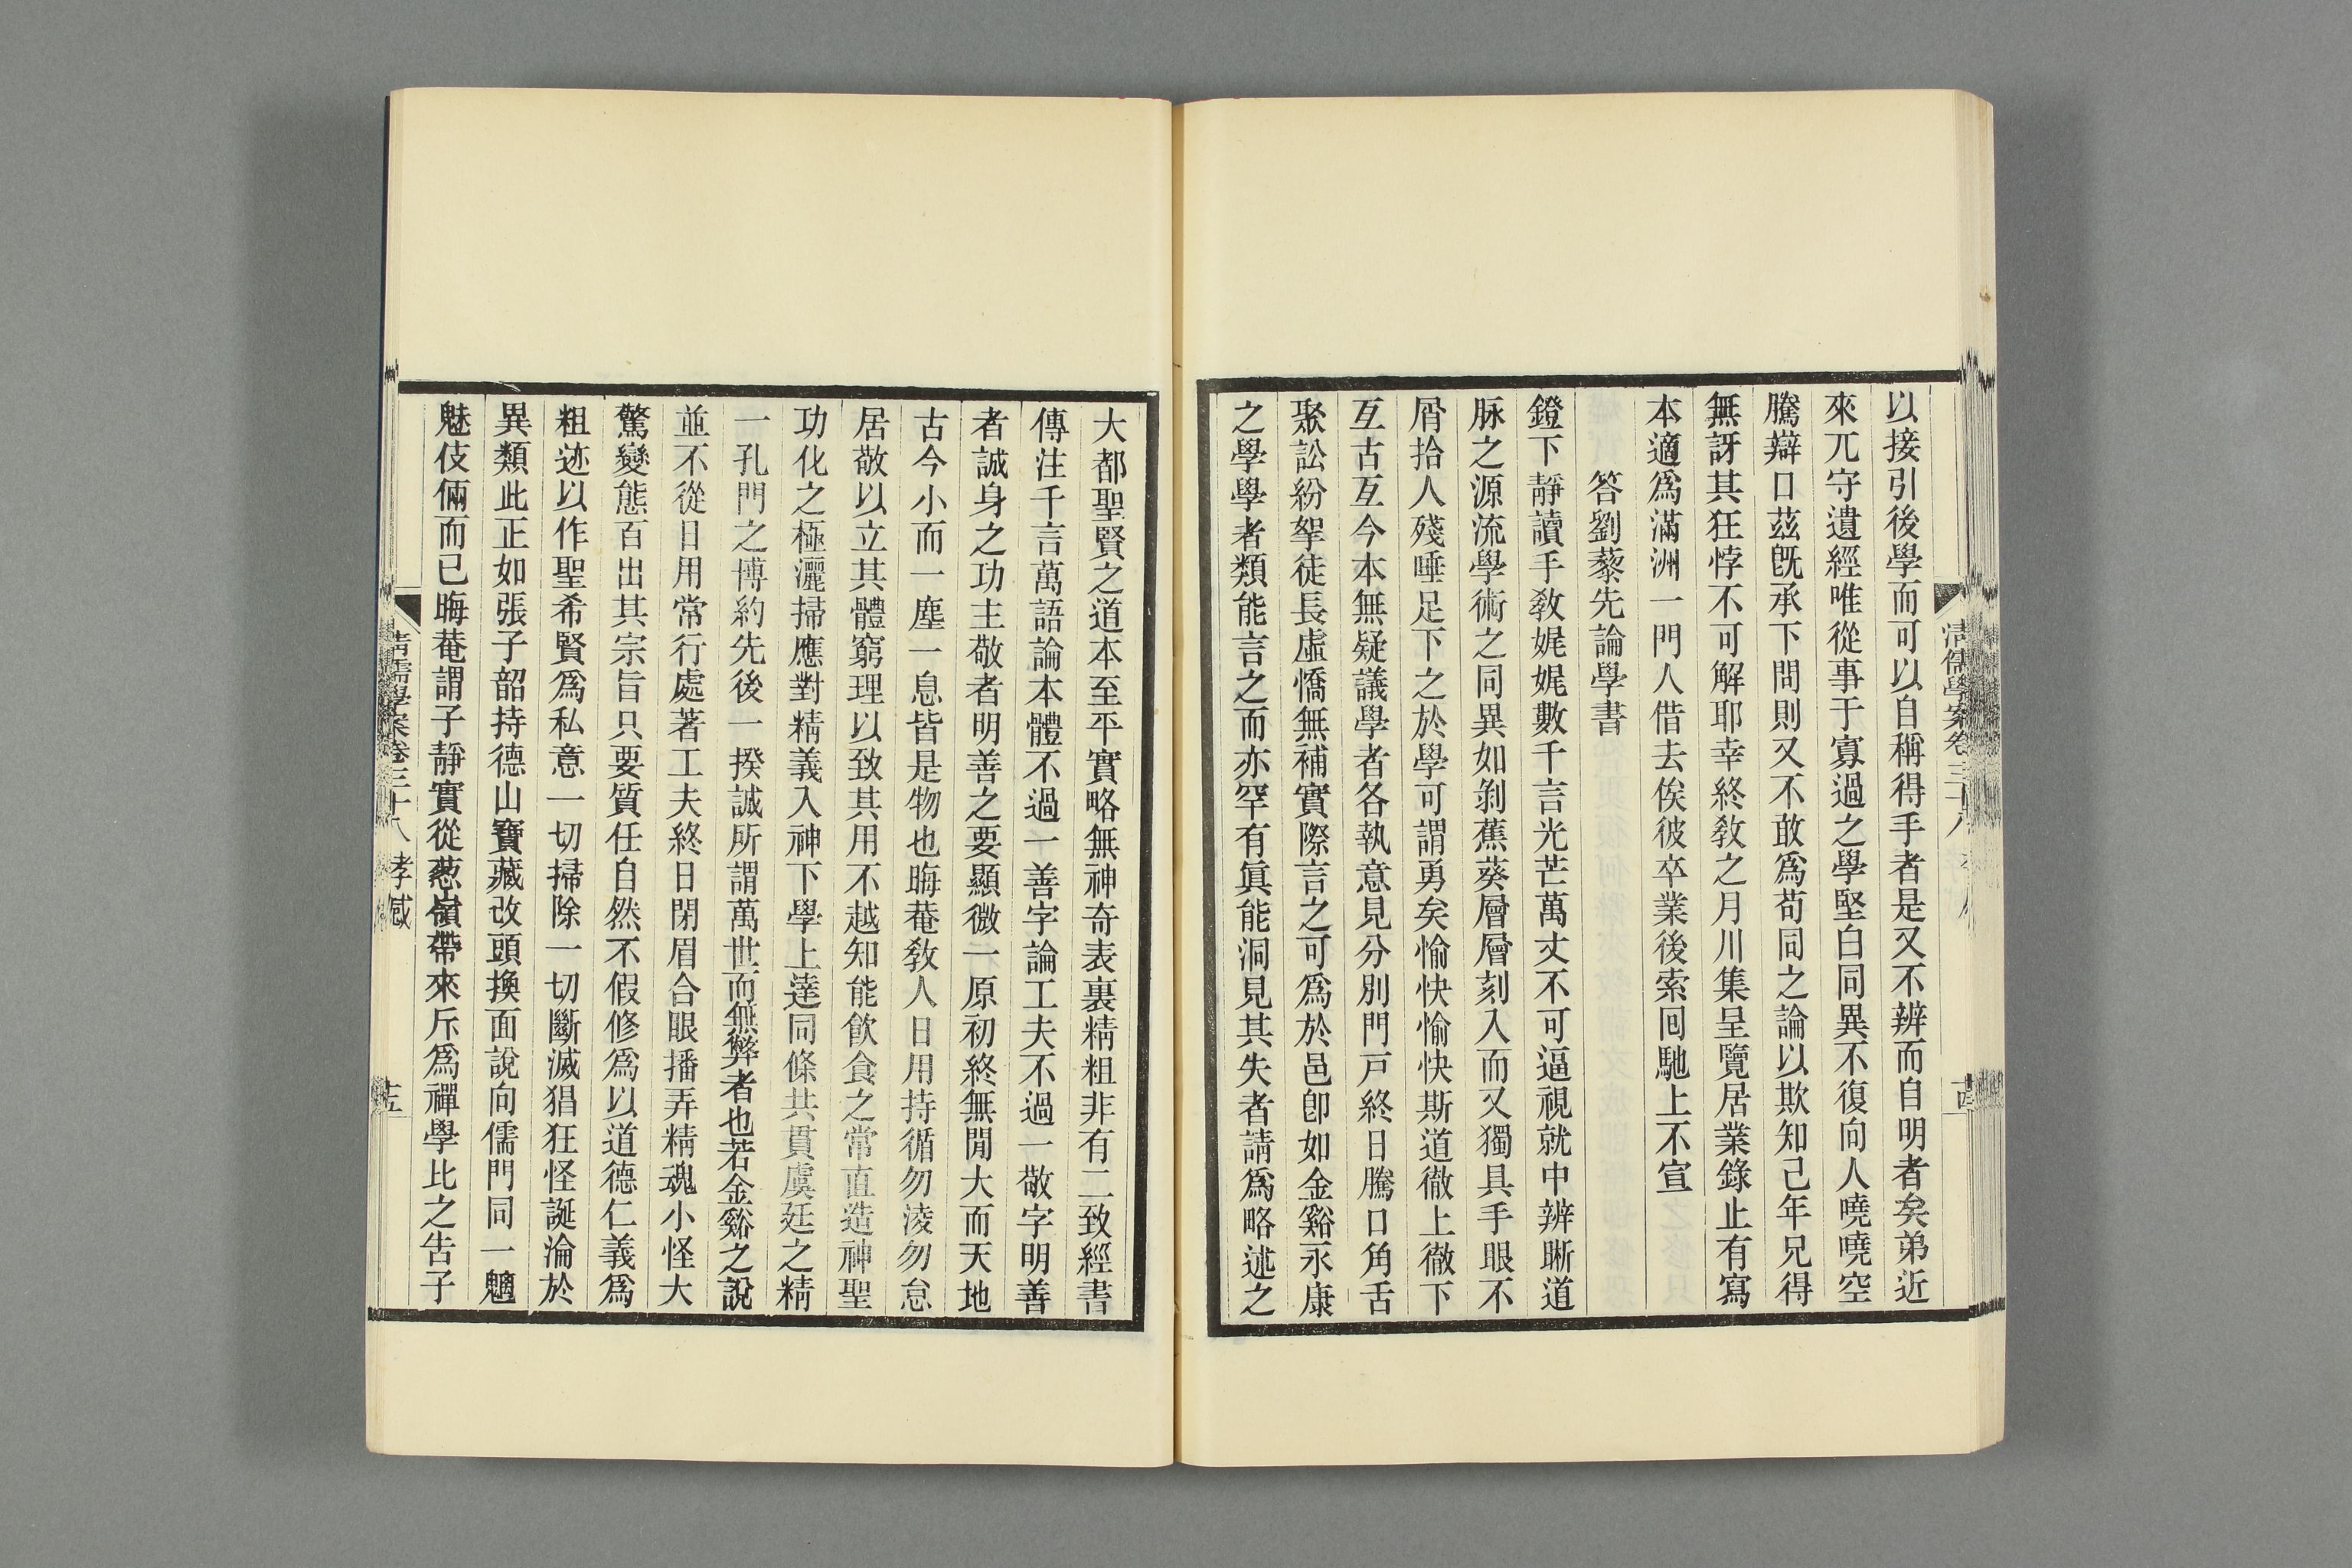 以接引後學而可以自稱得手者是又不辨而自明者矣弟近
來兀守遺經唯從事于寡過之學堅白同異不復向人嘵嘵空
騰辯口茲旣承下問則又不敢爲苟同之論以欺知己年兄得
無訝其狂悖不可解耶幸終敎之月川集呈覽居業錄止有寫
本適爲滿洲一門人借去俟彼卒業後索囘馳上不宣
答劉藜先論學書
鐙下靜讀手敎娓娓數千言光芒萬丈不可逼視就中辨晣道
脉之源流學術之同異如剝蕉葵層層刻入而又獨具手眼不
屑拾人殘唾足下之於學可謂勇矣愉快愉快斯道徹上徹下
互古互今本無疑議學者各執意見分別門戸終日騰口角舌
聚訟紛拏徒長虛憍無補實際言之可爲於邑卽如金谿永康
之學學者類能言之而亦罕有眞能洞見其失者請爲略述之
清儒學案卷三十八
十四
大都聖賢之道本至平實略無神奇表裏精粗非有二致經書
傳注千言萬語論本體不過一善字論工夫不過一敬字明善
者誠身之功主敬者明善之要顯微一原初終無閒大而天地
古今小而一塵一息皆是物也晦菴敎人日用持循勿淩勿怠
居敬以立其體窮理以致其用不越知能飮食之常直造神聖
功化之極灑掃應對精義入神下學上達同條共貫虞廷之精
一孔門之博約先後一揆誠所謂萬世而無弊者也若金谿之說
並不從日用常行處著工夫終日閉眉合眼播弄精魂小怪大
驚變態百出其宗旨只要質任自然不假修爲以道德仁義爲
粗迹以作聖希賢爲私意一切掃除一切斷滅猖狂怪誕淪於
異類此正如張子韶持德山寶藏改頭換面說向儒門同一魑
魅伎倆而已晦菴謂子靜實從葱嶺帶來斥爲禪學比之告子
清儒學案卷三十八 孝感
十五